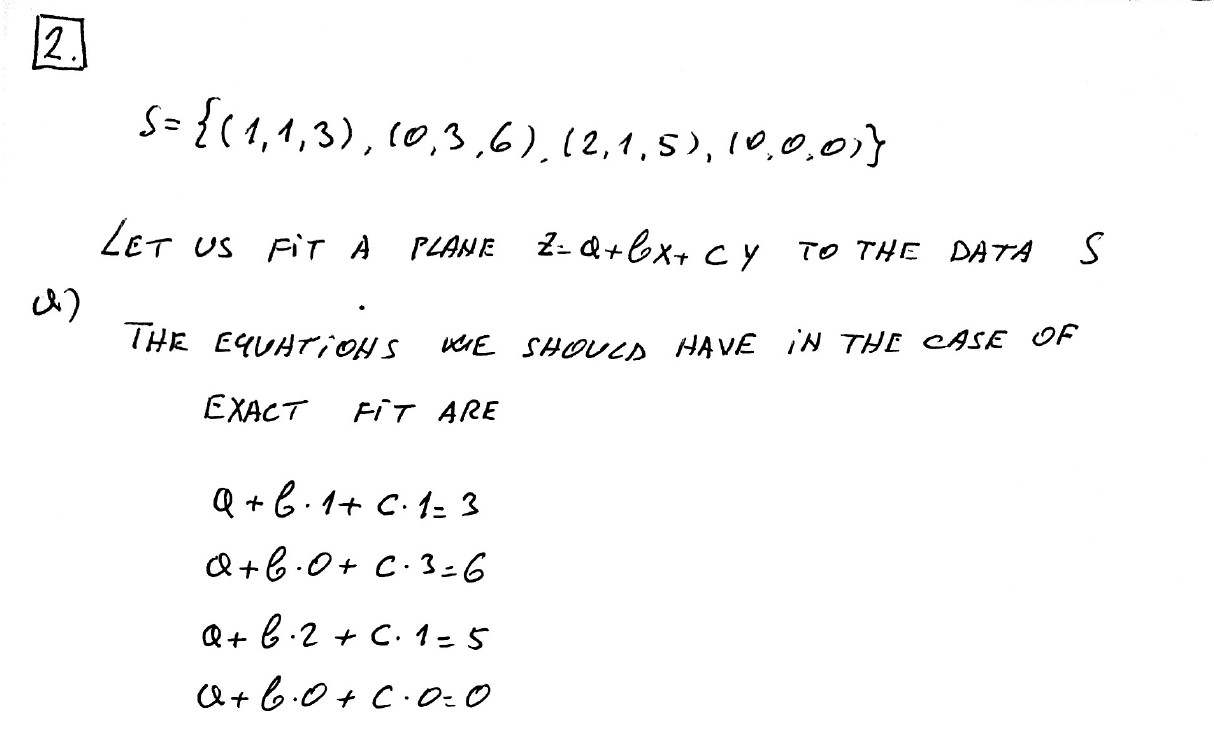 2.
S={(1,1,3), (0,3,6), (2,1,5), (0,0,0)}
LET US FIT A PLANE Z=a+bx+cy TO THE DATA S
a)
THE EQUATIONS WE SHOULD HAVE IN THE CASE OF
EXACT FIT ARE
a+b·1+c·1=3
a+b·0+c·3=6
a+b·2+c·1=5
a+b·0+c·0=0